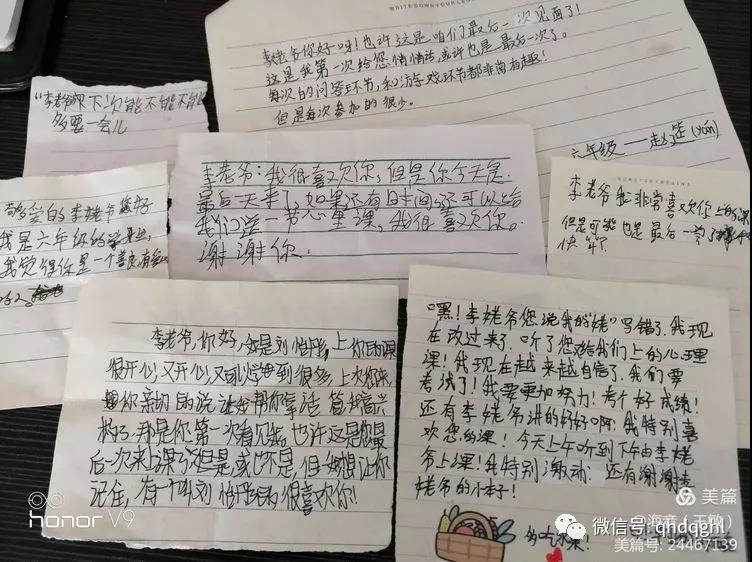 WRITE DOWN YOUR LOVE
李姥爷你好呀!也许这是咱们最后一次见面了!
这是我第一次给您
或许也是最后一次了。
每次的问答环节,和游戏环节都非常有趣!
但是每次参加的很少。
六年级——赵
(yán)
"李姥爷
下次能不能
多要一会儿
李老爷:我很喜欢你,但是你今天是
最后一天来了,如果还有时间还可以给
我们学一节心里课,我很喜欢你。
谢谢你.
李姥爷我非常喜欢你上的课
但是可能也是最后一节了
快
的李姥爷您好
我是六年级的
我觉得你是一个善良有
李老爷,你好,我是刘怡彤,上你的课
很开心,又开心,又可以学到很多,上次您来,
你亲切的说让我帮你拿话筒我高兴
那是你第一次看见我,也许这是您最
后一次来上课了但是,或也不是,但我想让你
记住,有一个叫刘怡彤的很喜欢你!
嘿!李姥爷您说我的"姥"写错了,我现
在改过来了.听了您给我们上的心理
课!我现在越来越自信了.我们要
考试了!我要更加努力!考个好成绩!
还有李姥爷讲的好好啊!我特别喜
欢您的课!今天上午听到下午由李姥
爷上课!我特别激动!还有谢谢李
姥爷的小本子!
honor V9
美篇
微信号: qhdqghl
美篇号: 24467139